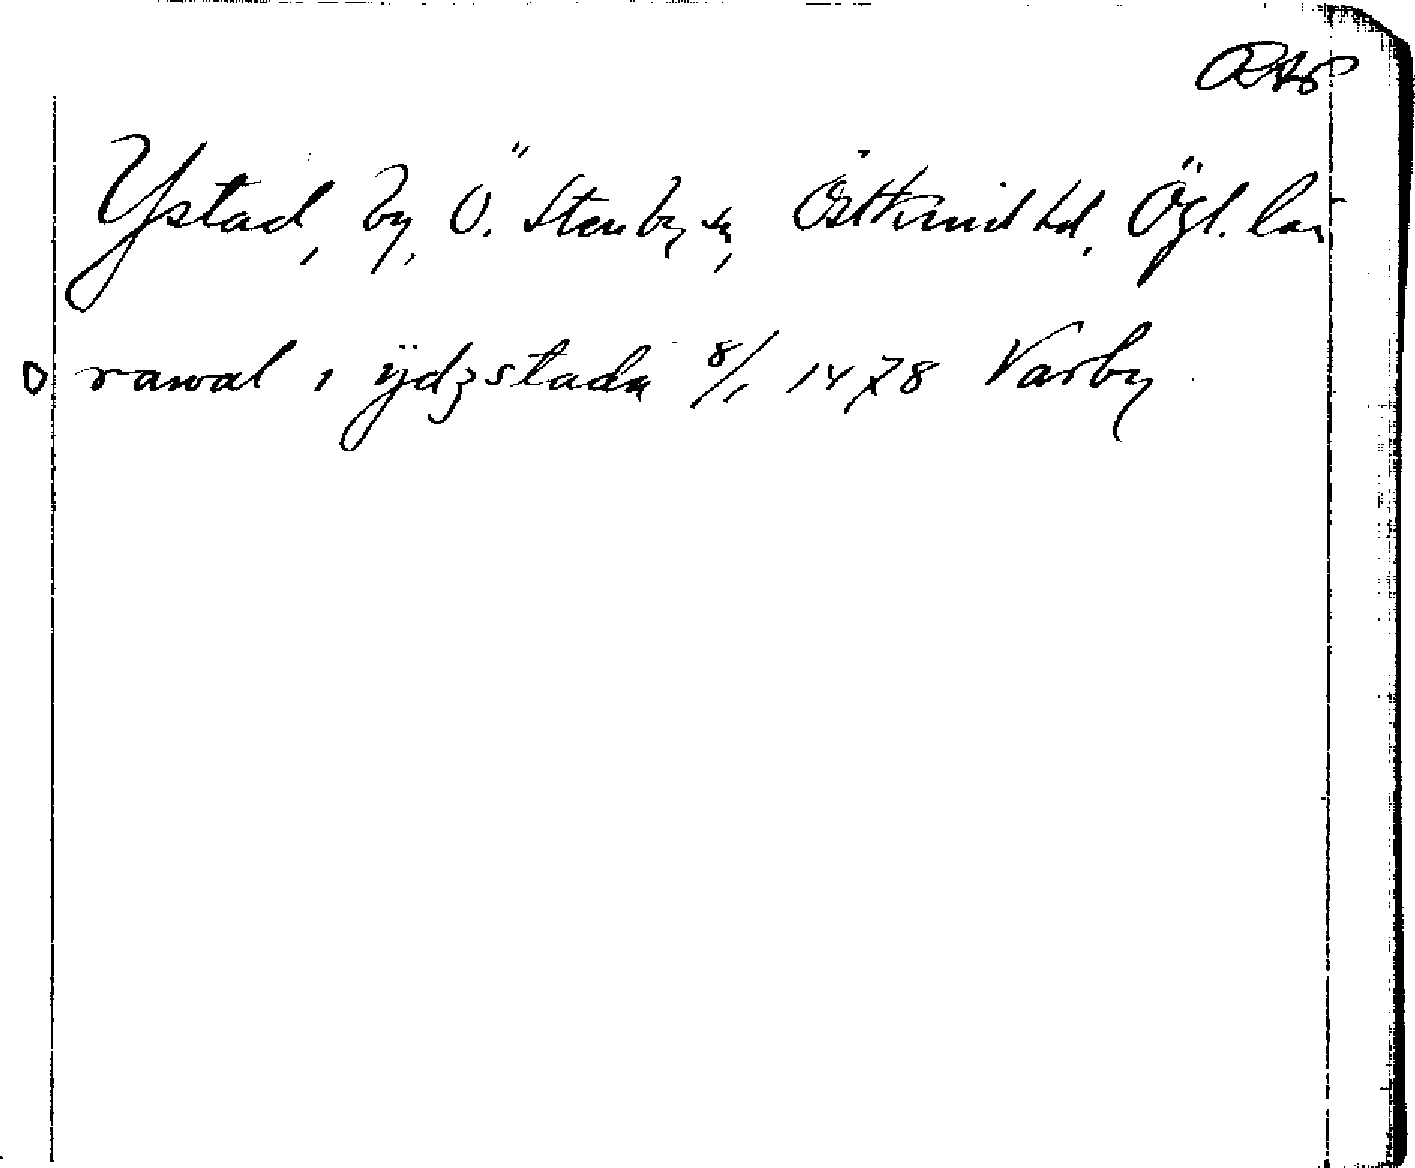 RAp
Ystad, by, Ö. Stenby sn, Östkind hd, Ögl. län
rawal i ÿdzstada 8/1 1478 Varby